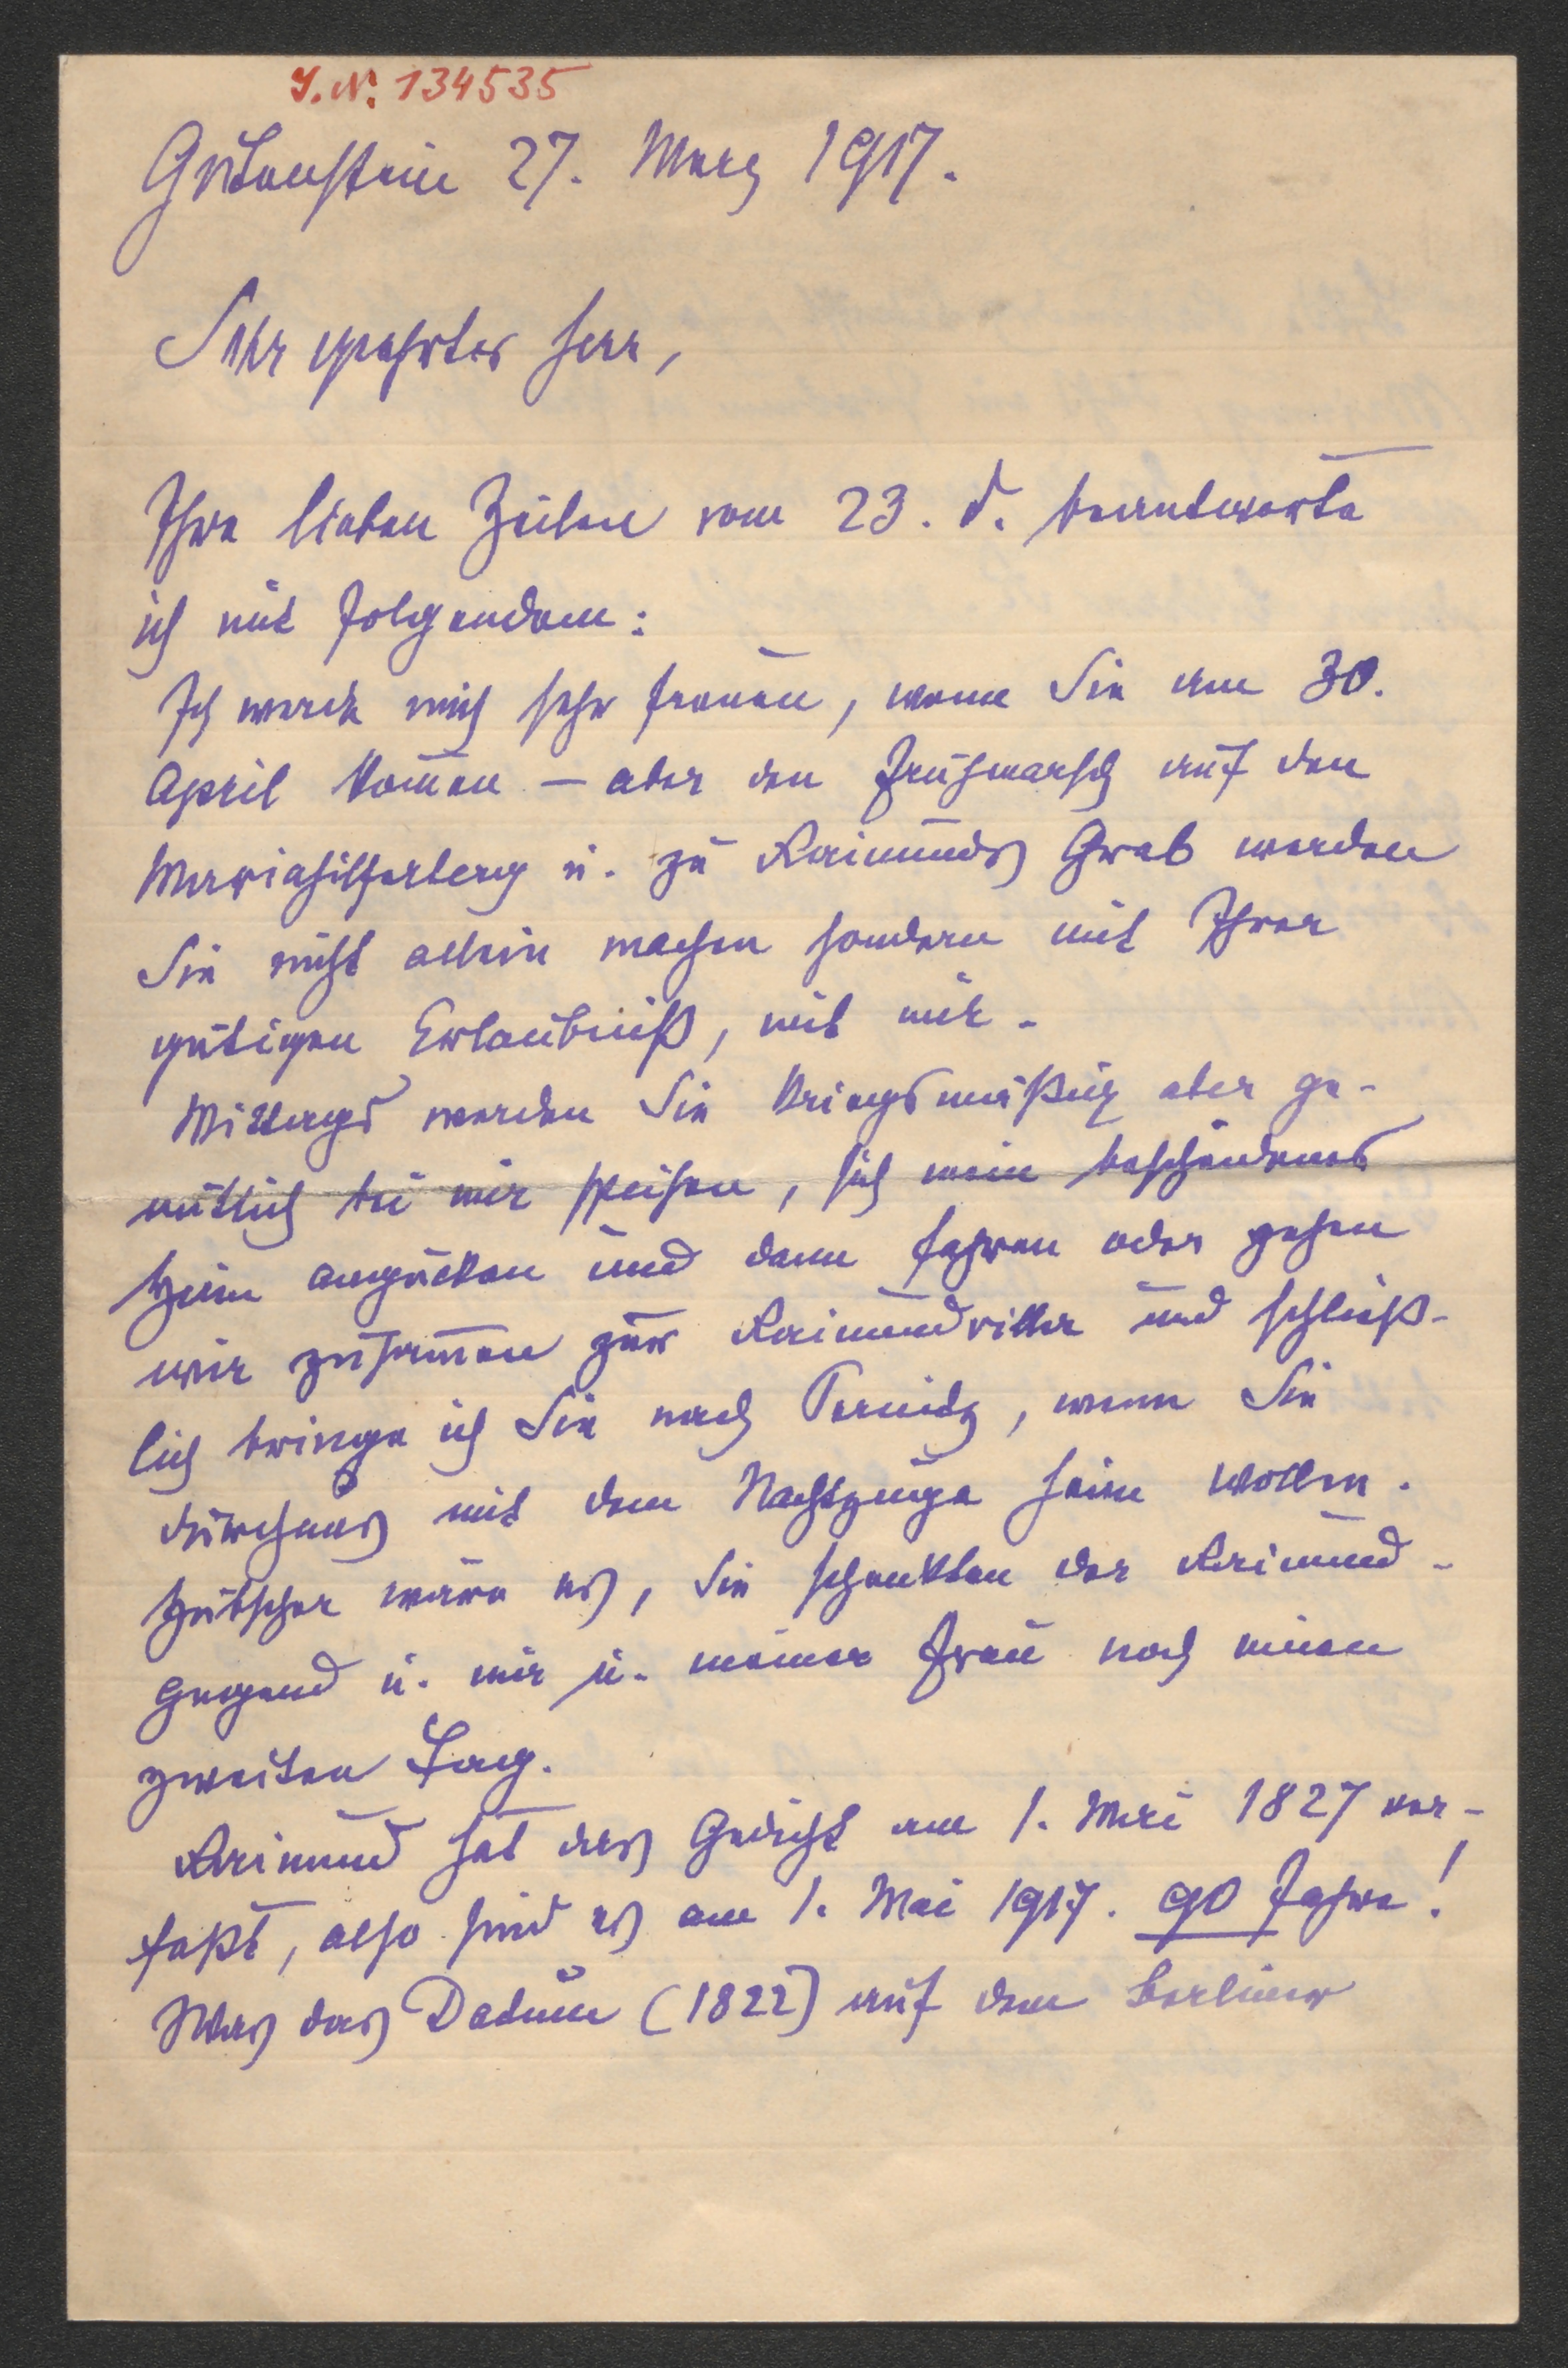 I. N. 134535
Gutenstein 27. März 1917.
Sehr geehrter Herr,
Ihre lieben Zeilen vom 23. d. beantworte
ich mit Folgendem:
Ich werde mich sehr freuen, wenn Sie am 30.
April kom̄en – aber den Frühmarsch auf den
Mariahilferberg u. zu Raimunds Grab werden
Sie nicht allein machen sondern mit Ihrer
gütigen Erlaubniß, mit mir.
Mittags werden Sie kriegsmäßig aber ge-
mütlich bei mir speisen, sich mein bescheidenes
Heim angucken und dann fahren oder gehen
wir zusam̄en zur Raimundvilla und schließ-
lich bringe ich Sie nach Pernitz, wenn Sie
durchaus mit dem Nachtzuge heim wollen.
Hübscher wäre es, Sie schenkten der Raimund-
gegend u. mir u. meiner Frau noch einen
zweiten Tag.
Raimund hat das Gedicht am 1. Mai 1827 ver-
faßt, also sind es am 1. Mai 1917. 90 Jahre!
Was das Datum (1822) auf dem Berliner